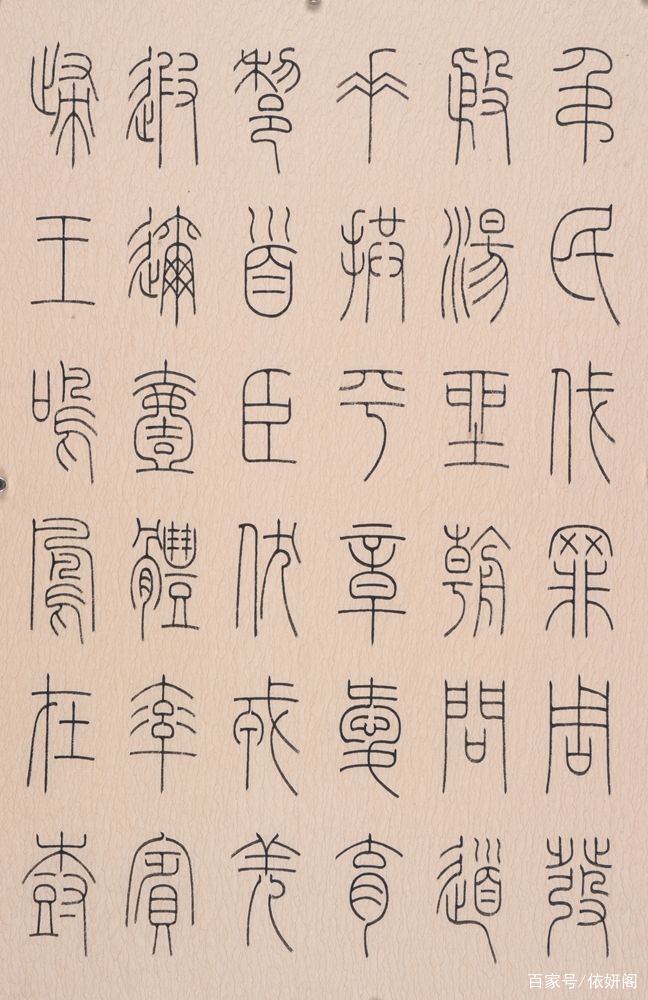 弔民伐罪周發
殷湯坐朝問道
垂拱平章愛育
黎首臣伏戎羌
遐邇壹體率賓
歸王鳴鳳在樹
百家号/依妍阁